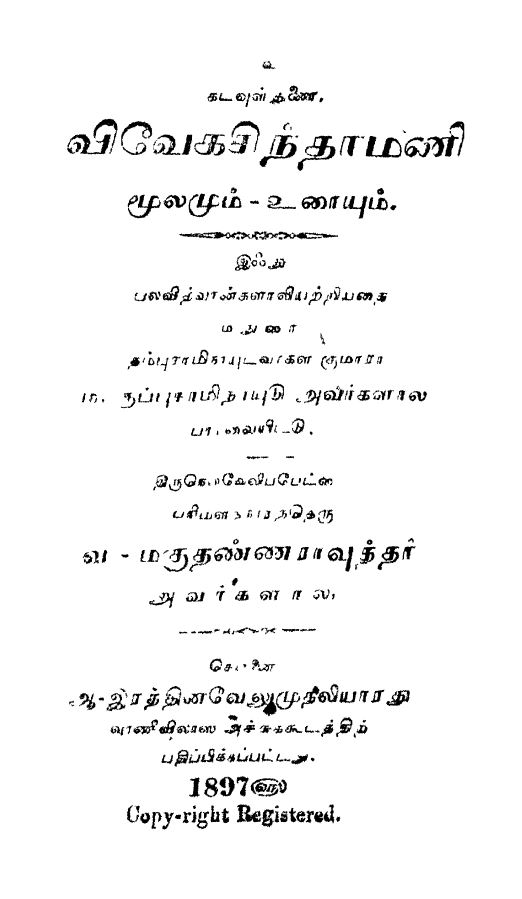 உ
கடவுள்துணை.
விவேகசிந்தாமணி
மூலமும் - உரையும்.
இஃது
பலவித்வான்களாலியற்றியதை
மதுரை
தம்புராமிநாயுடவர்கள் குமாரர்
அவர்களால்
பார்வையிட்டு.
வ - மகுதண்ணராவுத்தர்
அவர்களால்.
சென்னை
ஆ-இரத்தினவேலுமுதலியாரது
வாணிவிலாஸ அச்சுக்கூடத்திற்
பதிப்பிக்கப்பட்டது.
1897
Copy-right Registered.